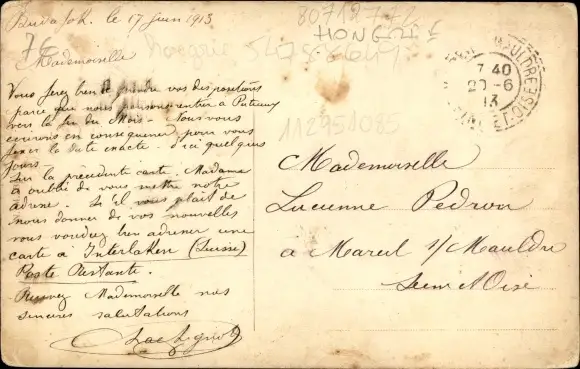 Budapest, le 17 juin 1913
Mademoiselle
Vous ferez bien de prendre vos dispositions
parce que nous pensons rentrer à Puteaux
vers la fin du Mois - Nous vous
écrirons en conséquence pour vous
fixer la date exacte. D'ici quelques
jours.
Sur la précédente carte, Madame
a oublié de vous mettre notre
adresse. S'il vous plait de
nous donner de vos nouvelles
vous voudrez bien adresser une
carte à Interlaken (Suisse)
Poste Restante.
Recevez Mademoiselle nos
sincères salutations
76
80712772
HONGRIE
Hongrie 547886411
112951085
MAULDRE
7 40
20-6
13
Mademoiselle
Lucienne Pedron
à Mareil s/ Mauldre
Seine & Oise